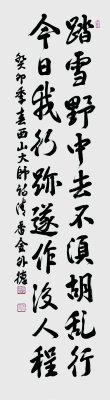 踏雪野中去不須胡亂行
今日我行跡遂作後人程
癸卯季春西山大師詩清香金